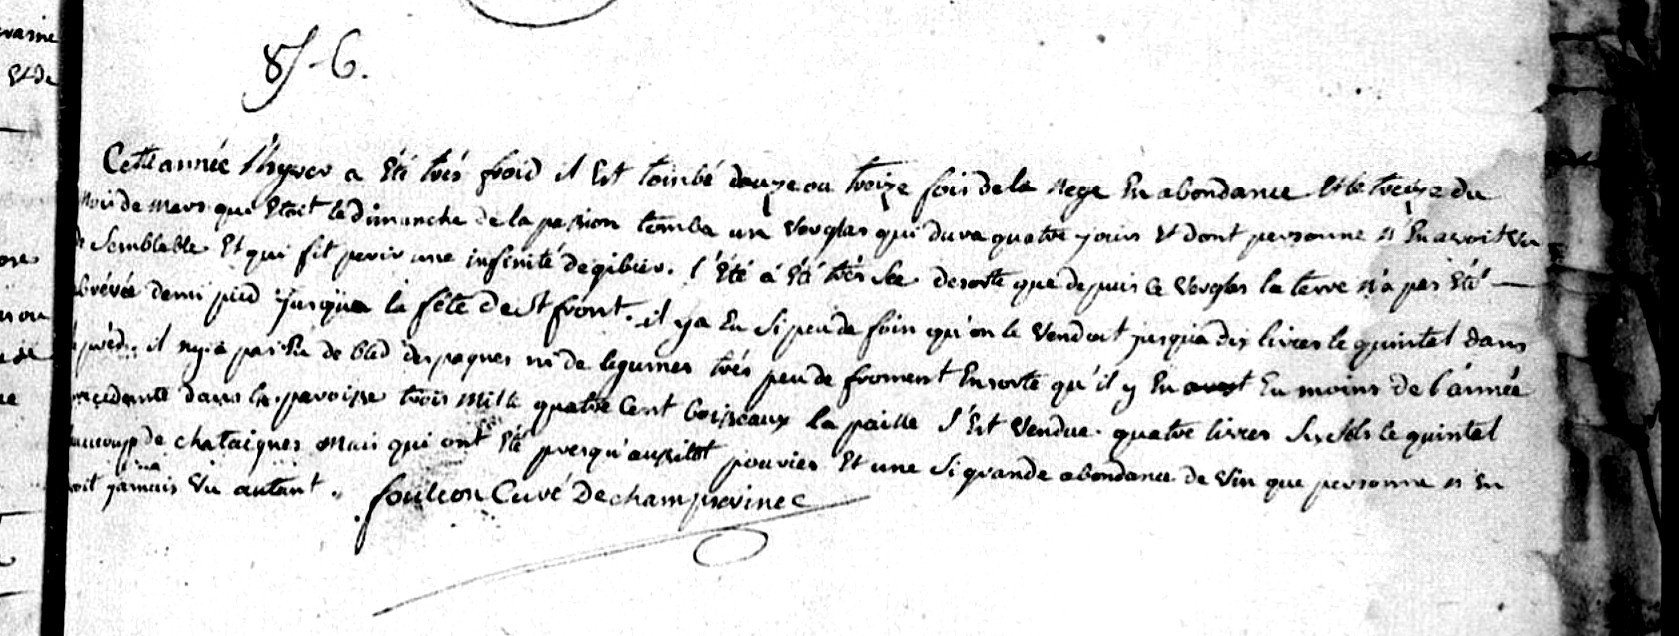 85-6.
Cette année l'hyver a été trés froid il est tombé douze ou treize fois de la nege en abondance et le treize du
mois de mars qui etoit le dimanche de la passion tomba un verglas qui dura quatre jours et dont personne n'en avoit vu
de semblable et qui fit perir une infinité de gibier. l'été a été trés sec desorte que depuis ce verglas la terre n'a pas été
abrévée demi pied jusqu'a la féte de St front. il y a eu si peu de foin qu'on le vendoit jusqu'a dix livres le quintal dans
il ny a pas eu de bled d'espagnes ni de legumes trés peu de froment ensorte qu'il y en eu moins de l'année
precedente dans la paroisse trois mille quatre cent boisseaux la paille s'est vendue quatre livres six sols le quintal
beaucoup de chataignes mais qui ont été presqu'aussitot pouries et une si grande abondance de vin que personne n'en
avoit jamais vu autant. foulcon Curé De champsevinec